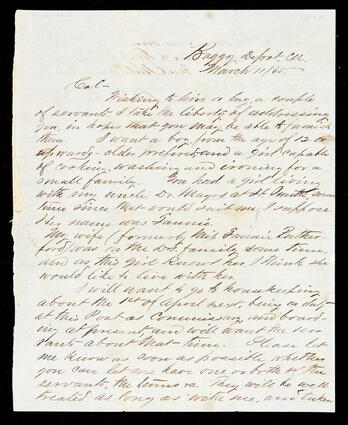 Boggy Depot, C.N.
March 11/65.
Col—
Wishing to hire or buy a couple
of servants I take the liberty of addressing
you, in hopes that you may be able to furnish
them. I want a boy from the age of 12 to
upwards—older prefered, and a girl capable
of cooking, washing and ironing for a
small family. You had a girl living
with my uncle, Dr Mayers at Ft Smith, some
time since that would suit me I suppose
Her name was Fannie.
My wife (formerly Miss Fannie Ruther
ford) was in the Drs. family some time
and as this girl knows her, I think she
would like to live with her.
I will want to go to housekeeping
about the 1st of April next, being on duty
at this Post as Commissary, and board-
ing at present, and will want the ser-
vants about that time. Please let
me know as soon as possible whether
you can let me have one or both of the
servants, the terms &c. They will be well
treated as long as with me, and taken